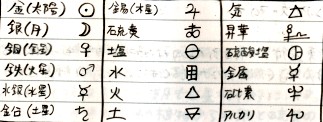 金(太陽) ☉ 金易(木星) ♃ 気 △
銀(月) ☽ 石硫黄 昇華
銅(金星) ♀ 塩 ⊖ 硫酸塩
鉄(火星) ♂ 水 金属
水銀(水星) ☿ 火 △ 砒素
鉛(土星) ♄ 土 アルカリ